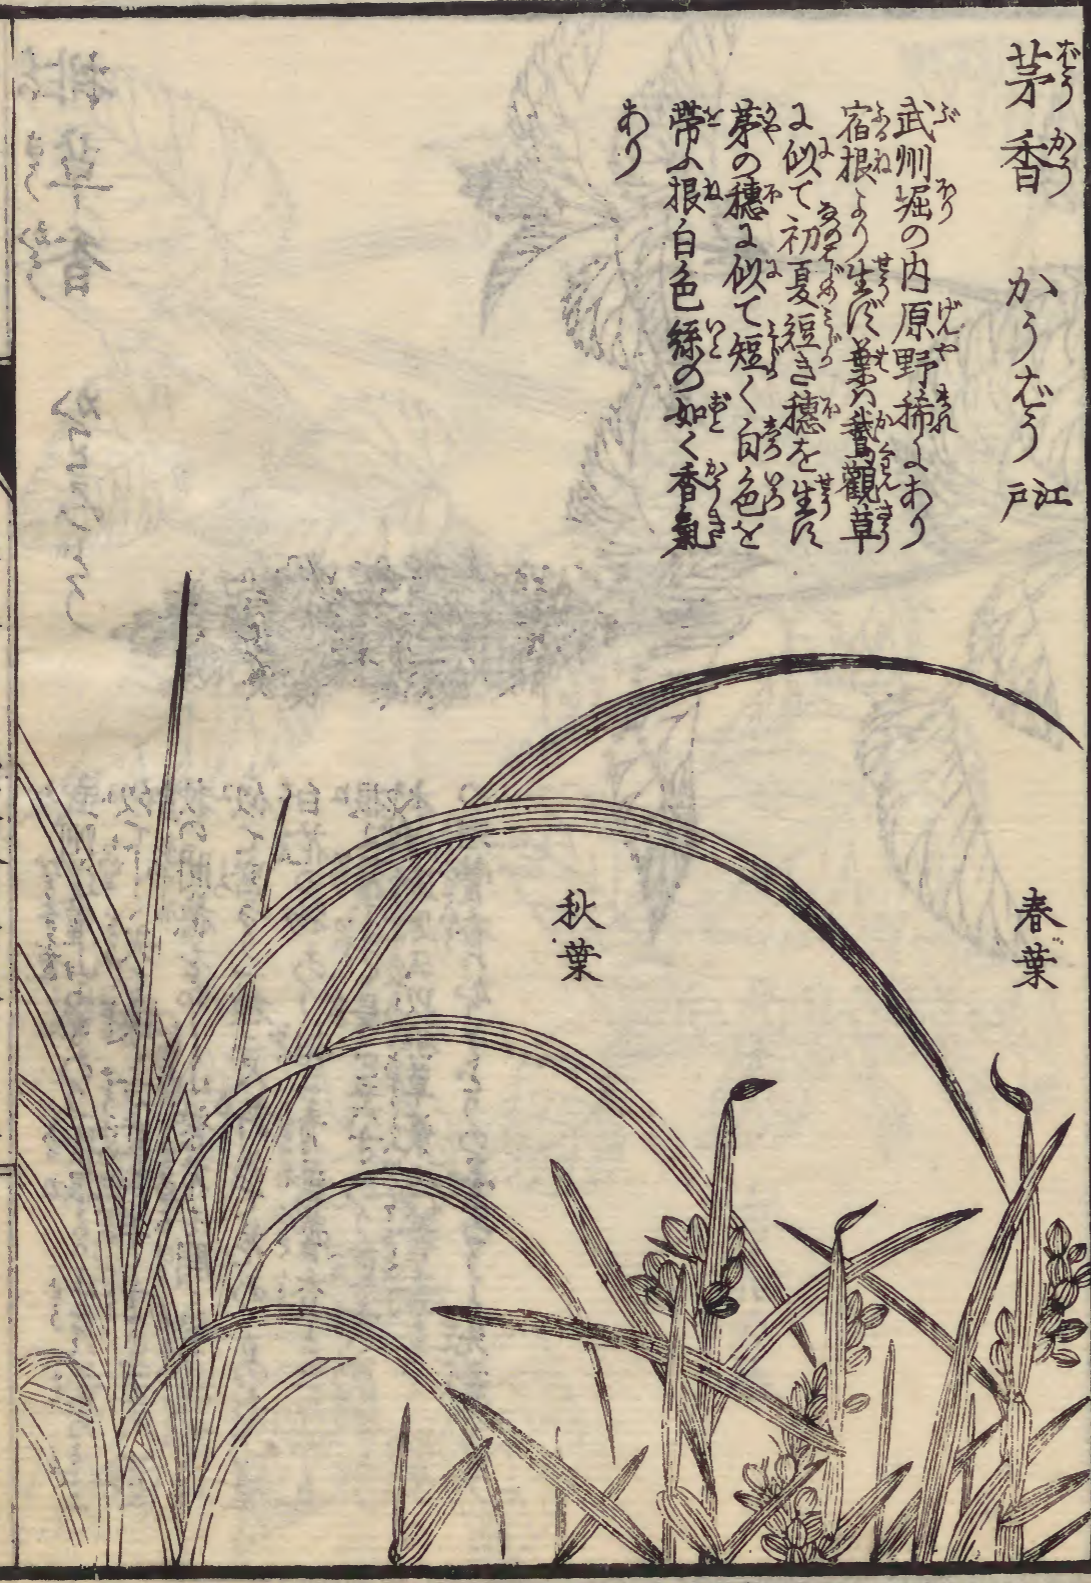 茅香 かうばう 江戸
武州堀の内原野稀にあり
宿根より生ず葉は鵞觀草
に似て初夏短き穗を生ず
茅の穗に似て短く白色を
帶ふ根白色絲の如く香氣
あり
春葉
秋葉